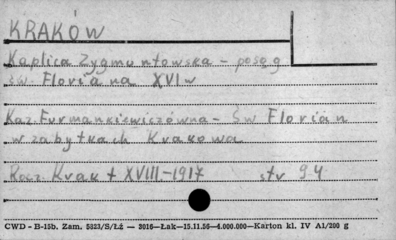 KRAKÓW
Kaplica Zygmuntowska - posąg
św. Floriana XVI w
Kaz. Furmankiewiczówna - Św Florian
w zabytkach Krakowa
Rocz. Krak t XVIII-1917 str 94
CWD - B-15b. Zam. 5823/S/Łż — 3016—Łak—15.11.56—4.000.000—Karton kl. IV A1/200 g